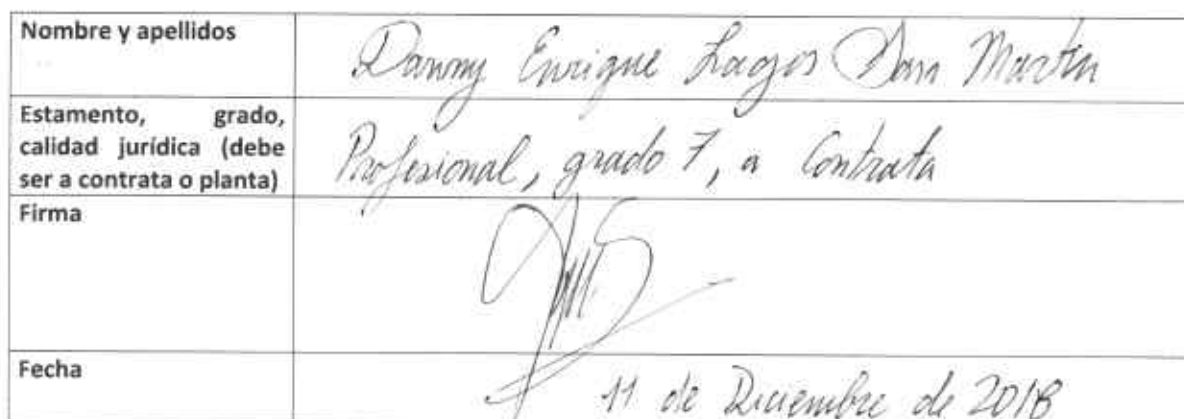 Nombre y apellidos
Danny Enrique Lagos San Martin
Estamento, grado,
calidad jurídica (debe
ser a contrata o planta)
Profesional, grado 7, a Contrata
Firma
Fecha
11 de Diciembre de 2018